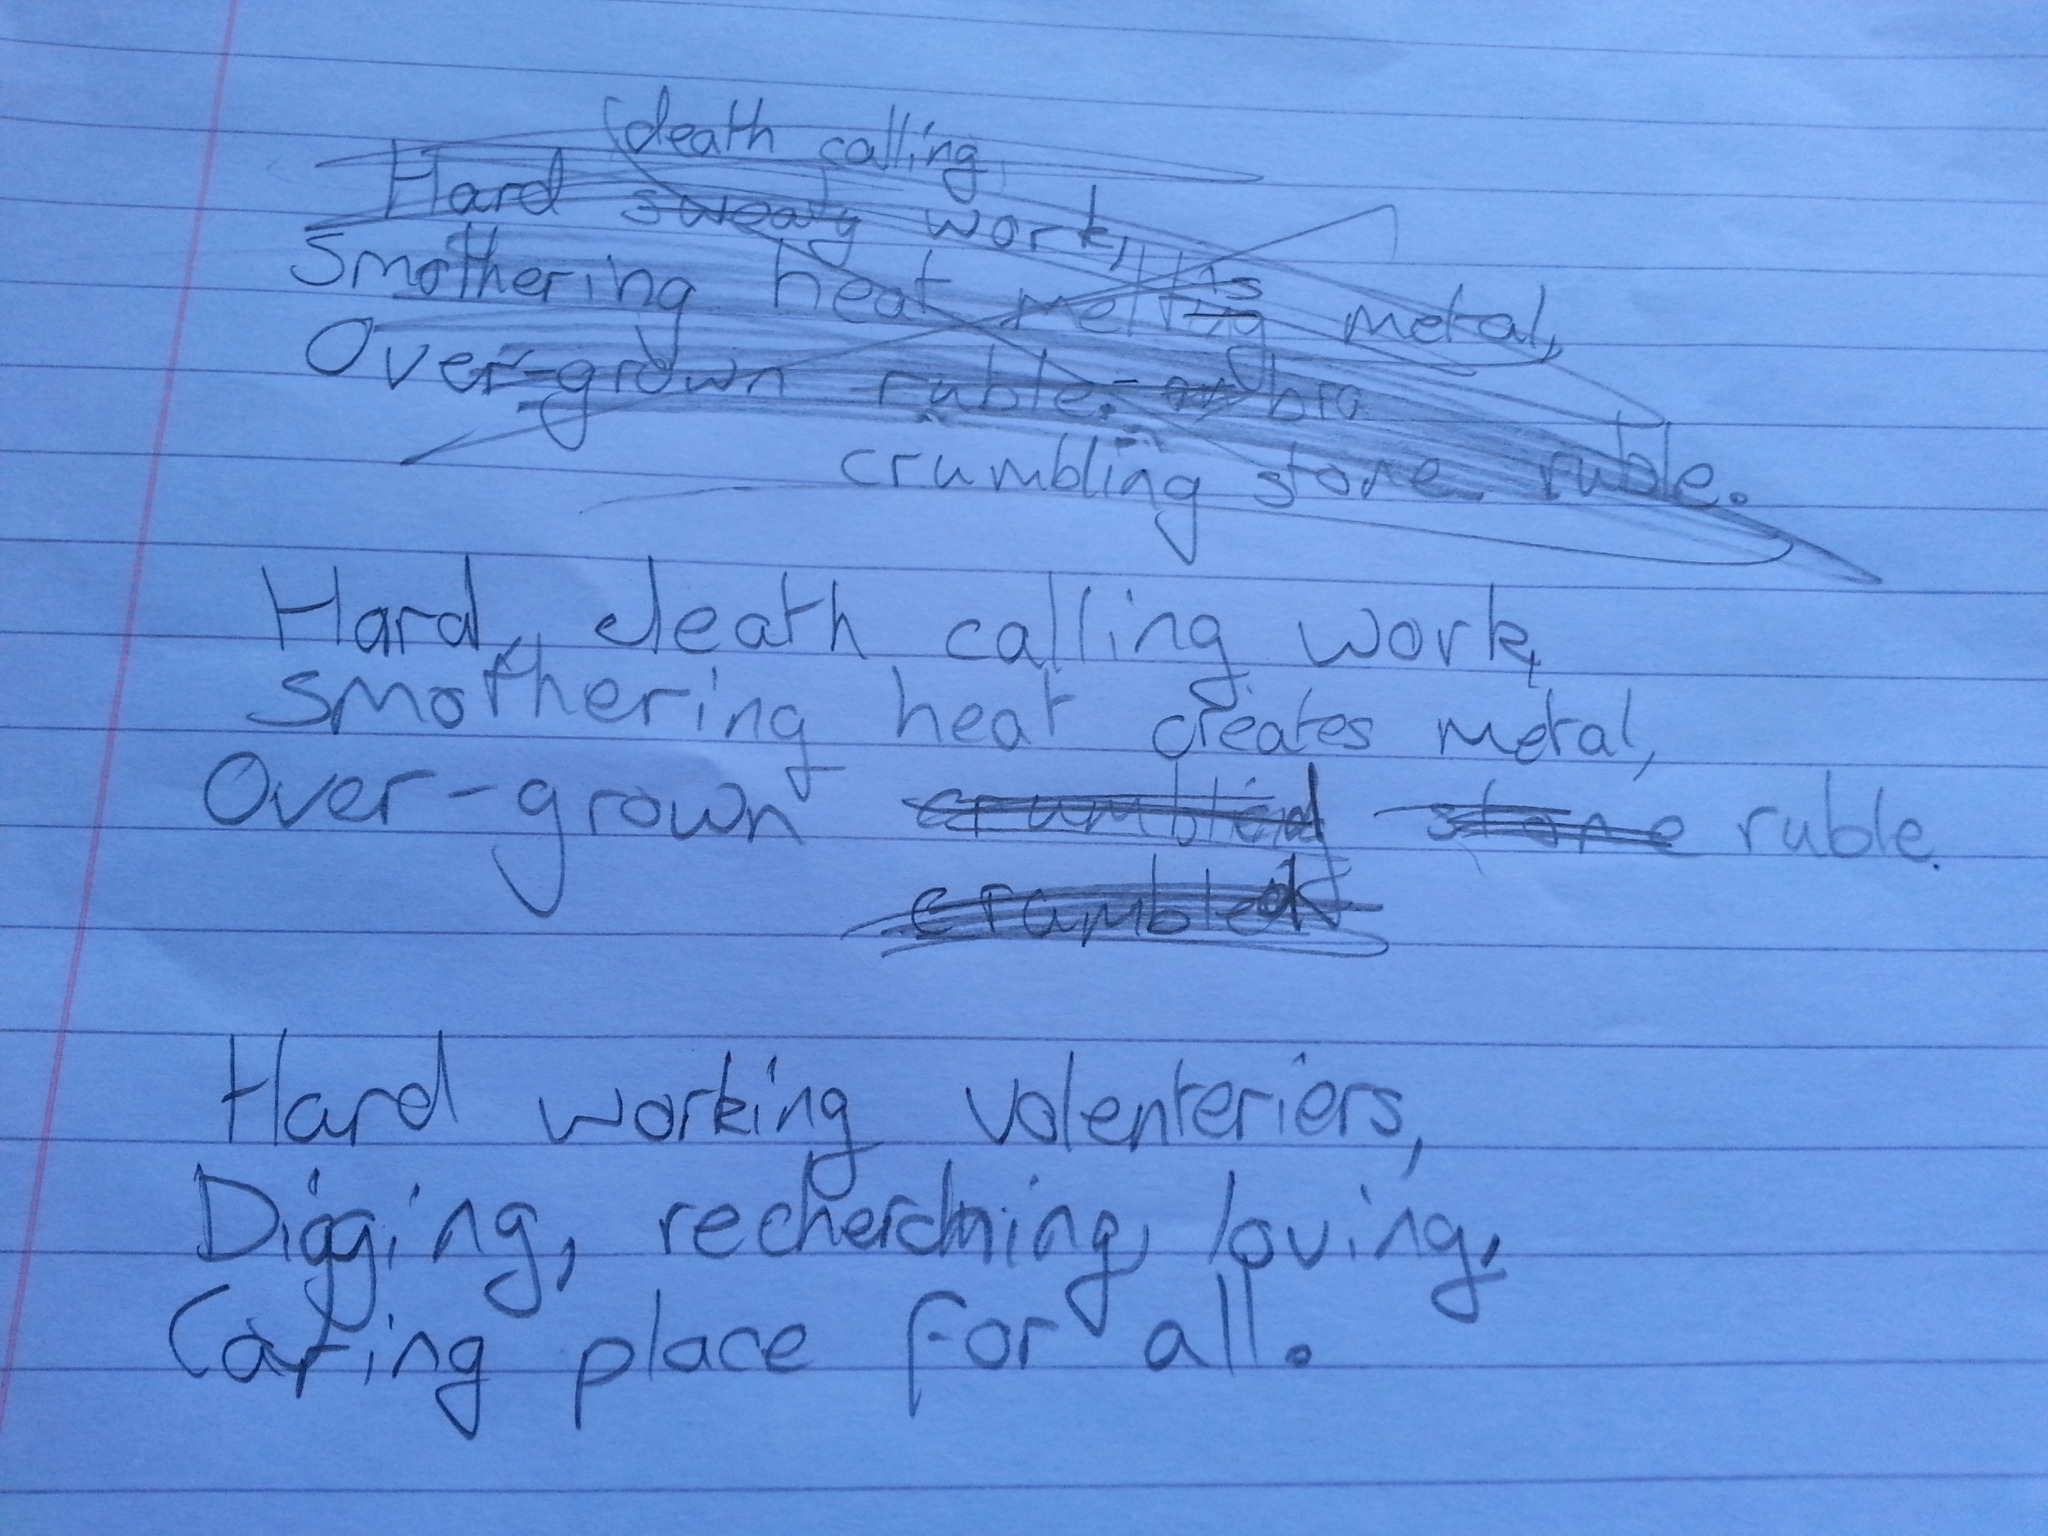 death calling
Hard sweaty work,
Smothering heat melting ts metal,
Over-grown ruble. bro
crumbling stone ruble.
Hard, death calling work,
smothering heat creates metal,
Over-grown crumbled stone ruble.
crumbled
Hard working volenteriers,
Digging, recherching, loving,
Caring place for all.